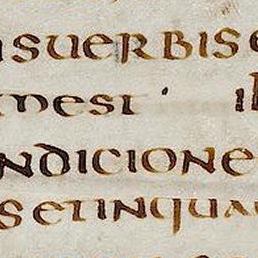 suerbise
mest · il
ndicione
setinqua